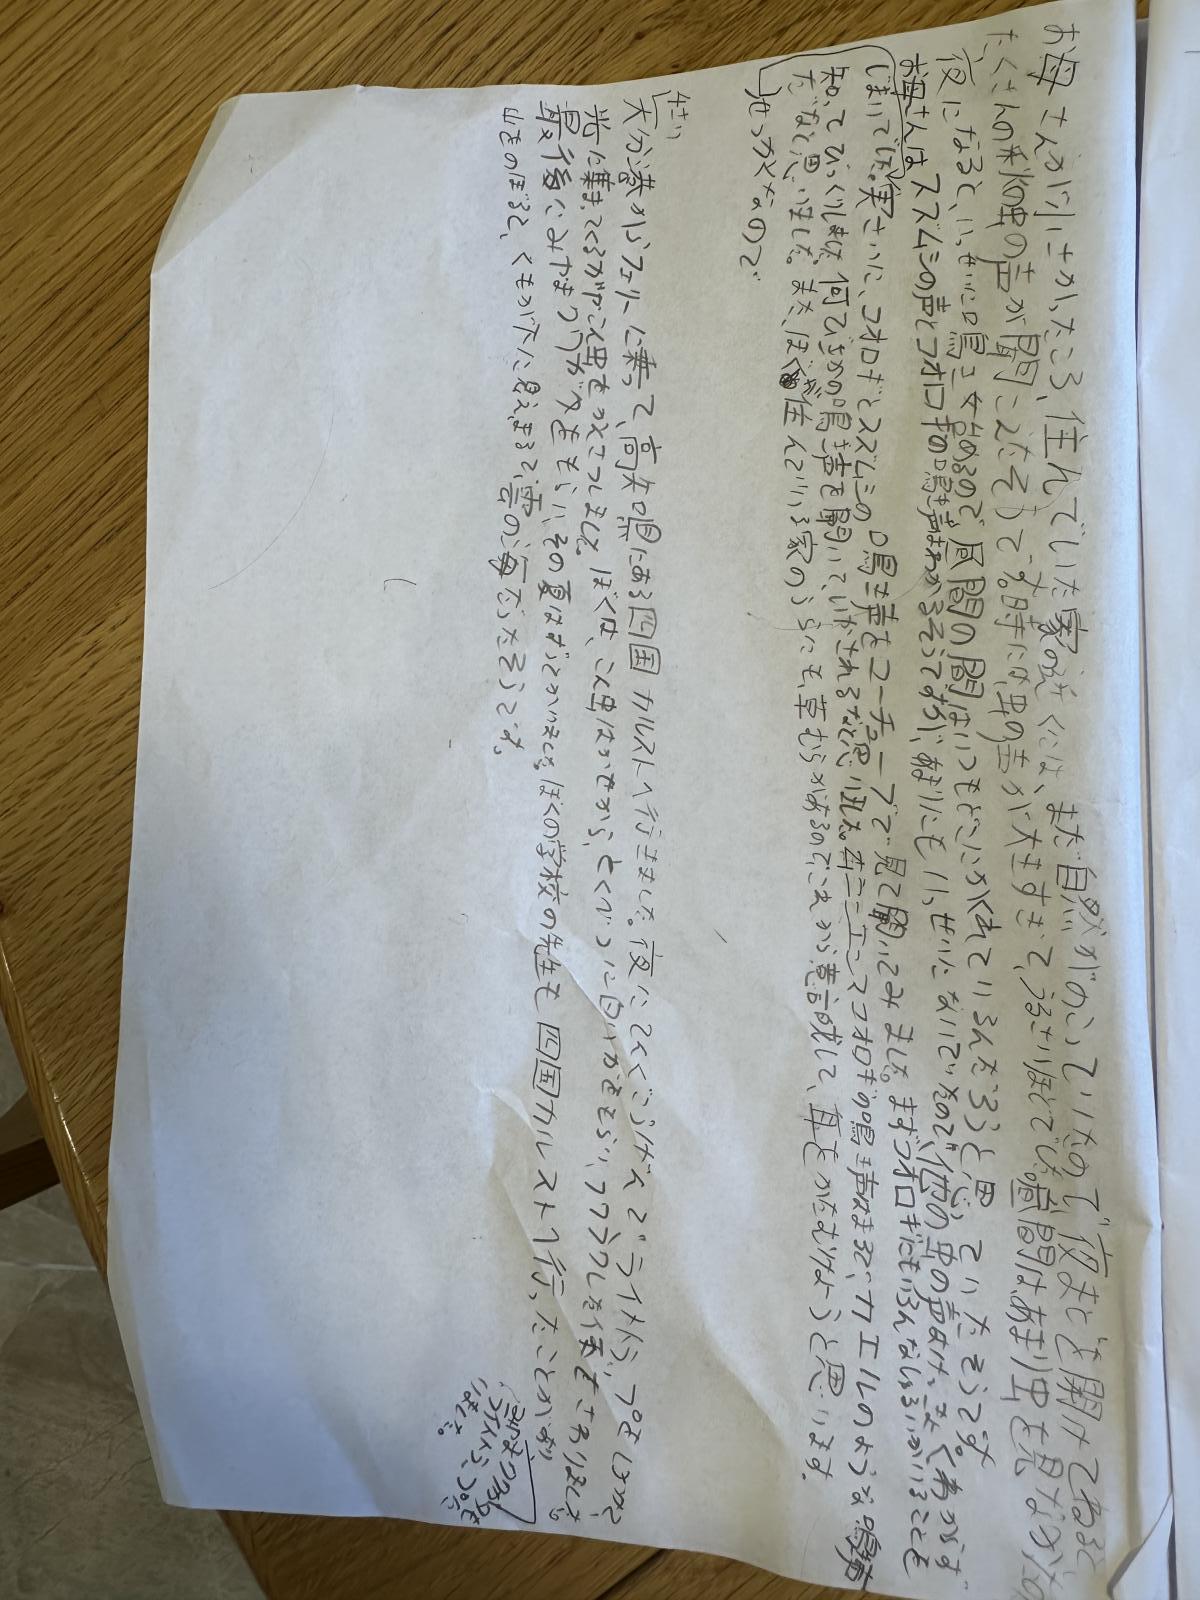 お母さんが小さかったころ、住んでいた家の近くには、まだ自然がのこっていたので、夜まどを開けてねると、
たくさんの秋の虫の声が聞こえたそうです。時には虫の声が大きすぎて、うるさいほどでした。昼間はあまり虫を見なかった
夜になると、いっせいに鳴き始めるので昼間の間はいつもどこにかくれているんだろうと思っていたそうです。
お母さんはスズムシの声とコオロギの鳴き声はわかるそうですが、あまりにもいっせいにないていたので、他の虫の声はまったくわからず
じまいでした。実さいに、コオロギとスズムシの鳴き声をユーチューブで見て聞いてみました。まずコオロギにもいろんなしゅるいがいることを
知ってびっくりしました。何びきかの鳴き声を聞いていやされるなと思いました。エンマコオロギの鳴き声はまるで、カエルのような鳴き声
だなと思いました。また、ぼくが住んでいる家のうらにも、草むらがあるのでこれから意識して、耳をかたむけようと思います。
せっかくなので
せい
大分港からフェリーに乗って、高知県にある四国カルストへ行きました。夜にてんぐこうげんでライトトラップをしかけて
光に集まってくるガやこん虫をかんさつしました。ぼくは、こん虫はかせから、とくべつに白いガをもらい、ワクワクしながら夜をすごしました。
最後にみやまクワガタをもらい、その夏はずっとかいました。ぼくの学校の先生も四国カルストへ行ったことがあり
山をのぼると、くもが下に見えまるで雲の海だったそうです。